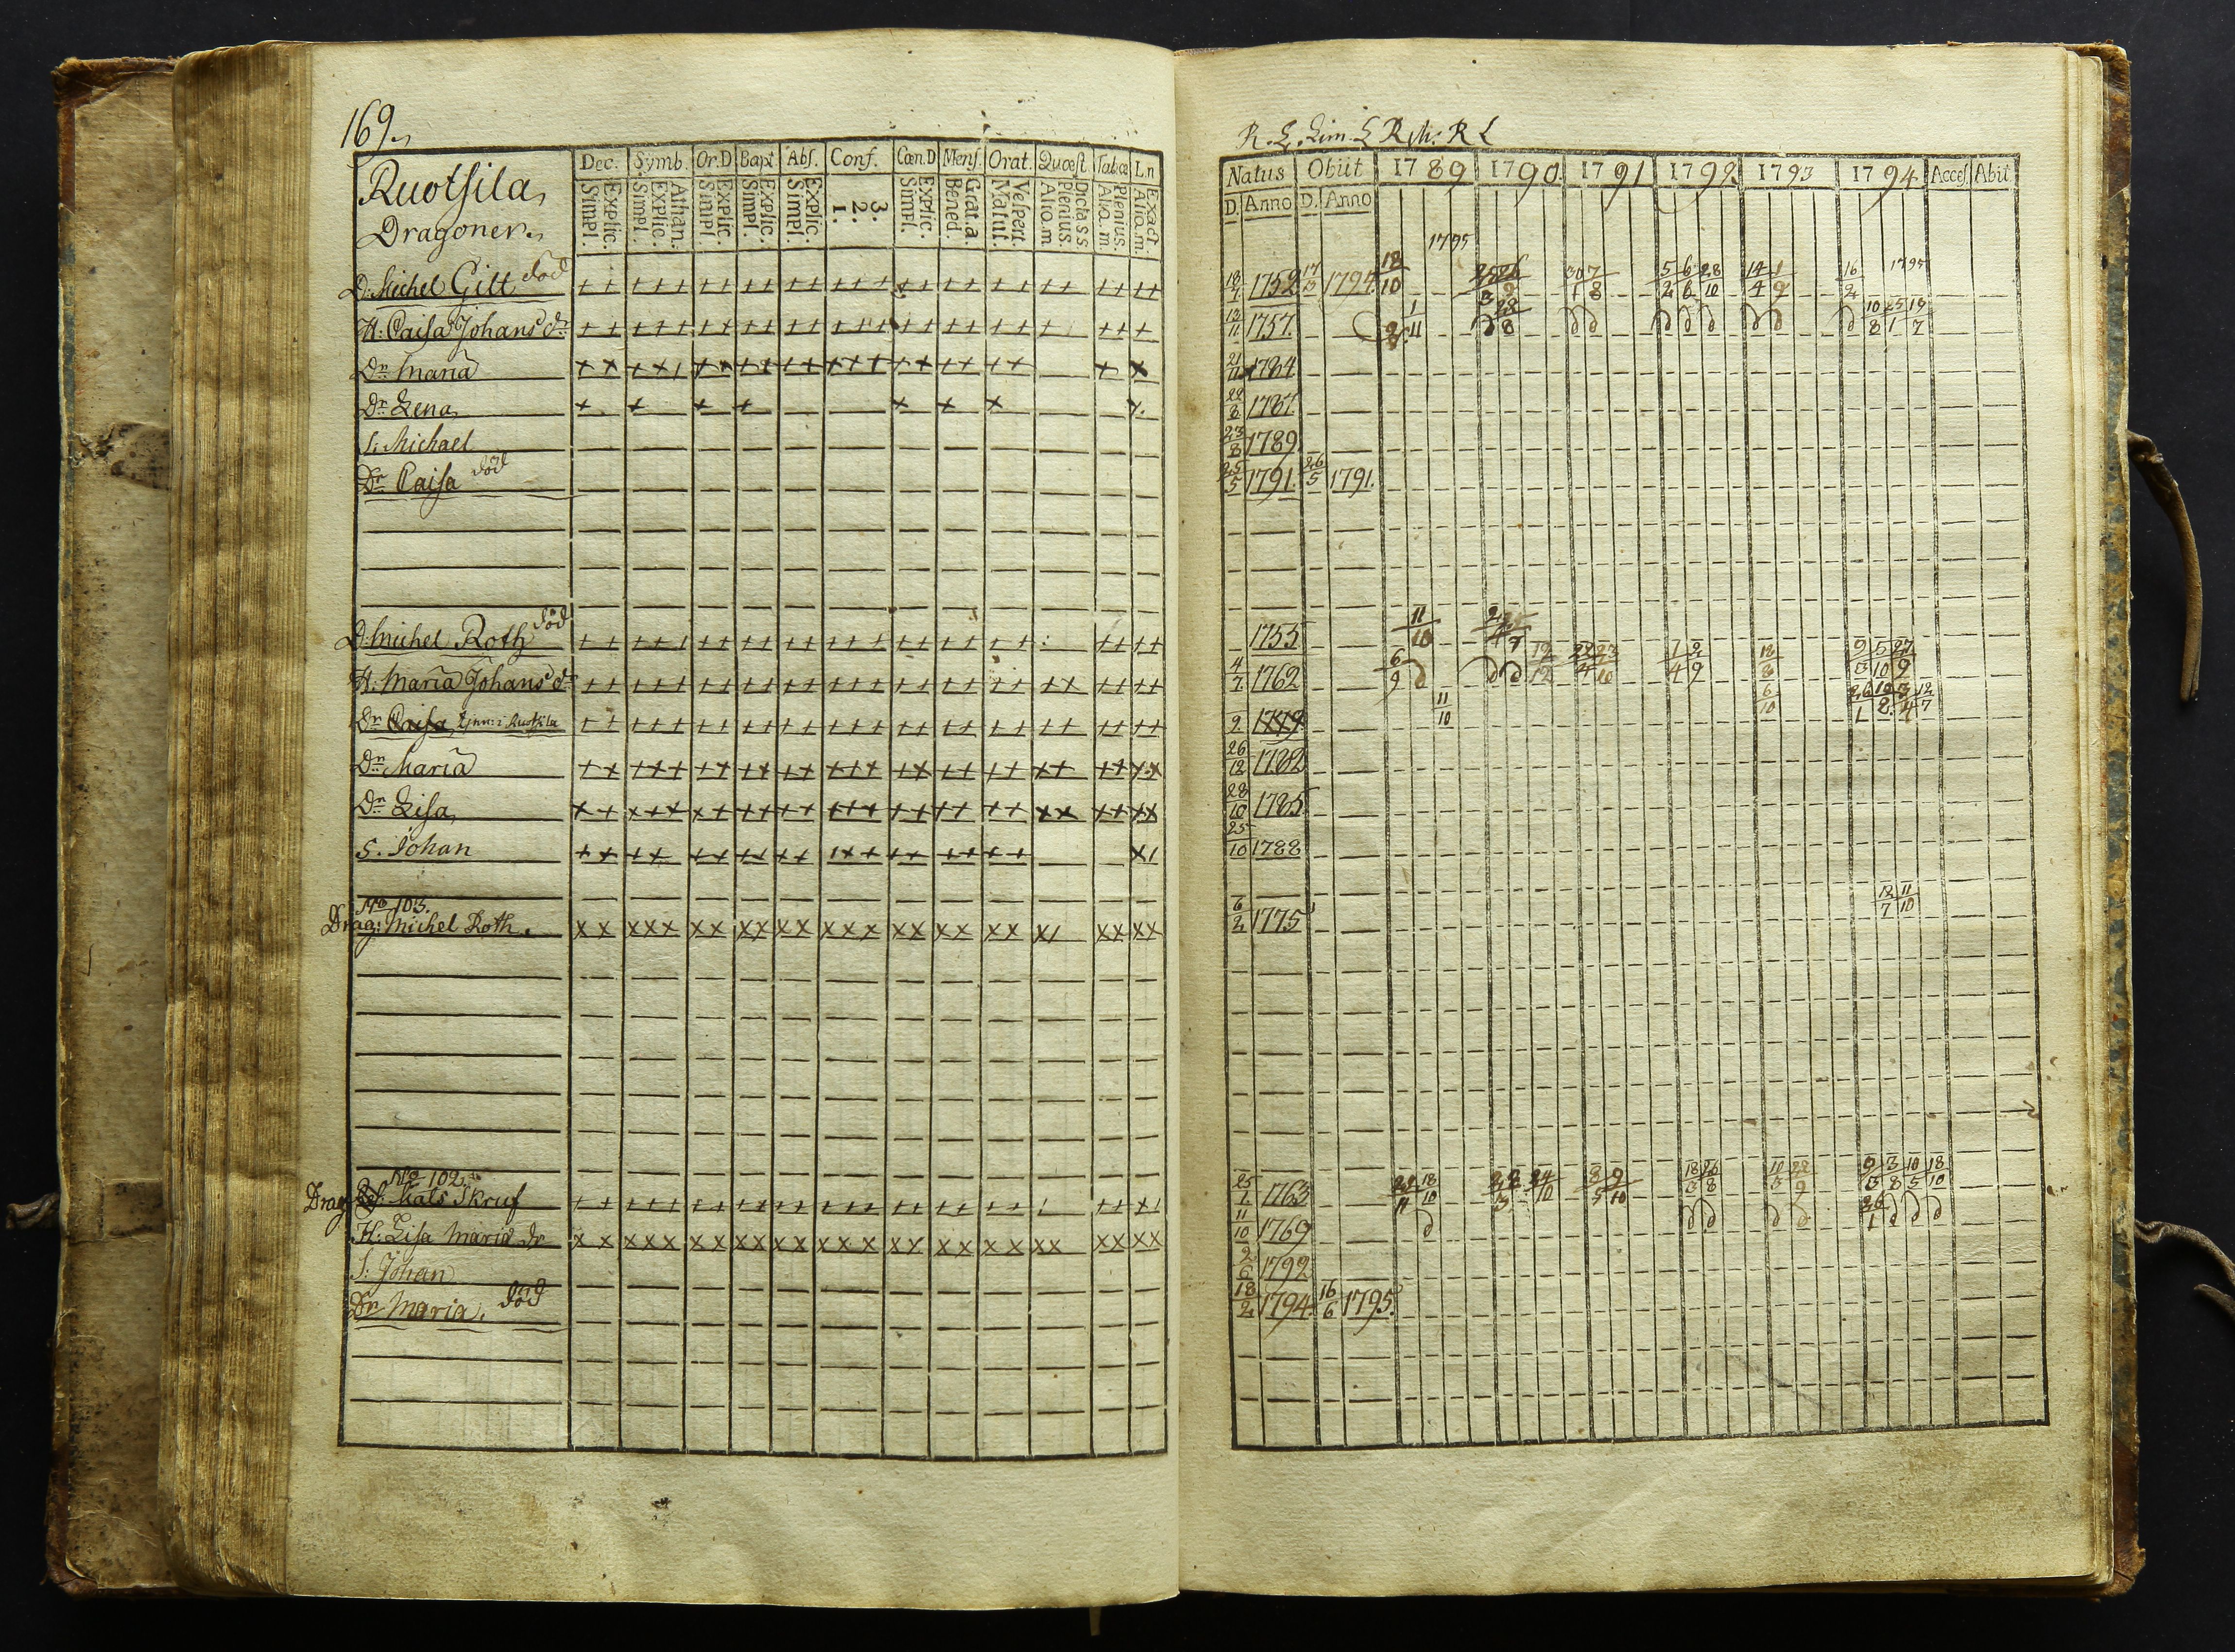 169.
Ruotsila,
Dragoner.
Dec. Symb. Or.D Bapt. Abs. Conf. Cœn.D Mens. Orat. Quæst. Tabcæ L.n
Explic. Simpl.
Athan. Explic. Simpl.
Explic. Simpl.
Explic. Simpl.
Explic. Simpl.
3. 2. 1.
Explic. Simpl.
Grat.a. Bened.
Vespert. Matut.
Dicta s.s. Plenius. Alio.m.
Plenius. Alio.m.
Exact Alio.m.
D: Michel Gilt död
H: Caisa Johans dr
Dr Maria
Dr Lena
S: Michael
Dr Caisa död
D: Michel Roth död
H: Maria Johans dr
Dr Caisa
Dr Maria
Dr Lisa
S. Johan
No 103.
Drag: Michel Roth.
No 102.
Drag Mats Skruf
H: Lisa Maria dr
S: Johan
Dr Maria. död
R. L. Lim. L R M: R L
Natus Obiit 1789 1790. 1791 1792. 1793 1794. Acces Abit
D. Anno D. Anno
1795
18/7 1752 17/3 1794. 18/10 5/2 6/6 28/10 14/4 1/9 16/2 1795
12/11 1757. 1/11 28/8 10/8 25/1 19/7
21/11 1784
22/8 1787.
23/8 1789.
25/5 1791. 26/5 1791.
1755 11/10
4/7 1762 6/9 12/12 23/10 1/4 2/9 18/3 9/3 5/10 27/9
2 1779 11/10 6/10 26/1 12/2 3/4 12/7
26/12 1782
28/10 1785
25/10 1788
6/2 1775 12/7 11/10
25/1 1763 22/11 18/10 22/3 24/10 3/5 9/10 18/3 26/8 10/3 22/9 9/3 3/8 10/5 18/10
11/10 1769 26/1
2/6 1792
18/2 1794. 16/6 1795.